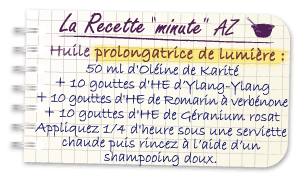 La Recette "minute" AZ
Huile prolongatrice de lumière :
50 ml d'Oléine de Karité
+ 10 gouttes d'HE d'Ylang-Ylang
+ 10 gouttes d'HE de Romarin à verbénone
+ 10 gouttes d'HE de Géranium rosat
Appliquez 1/4 d'heure sous une serviette
chaude puis rincez à l'aide d'un
shampooing doux.